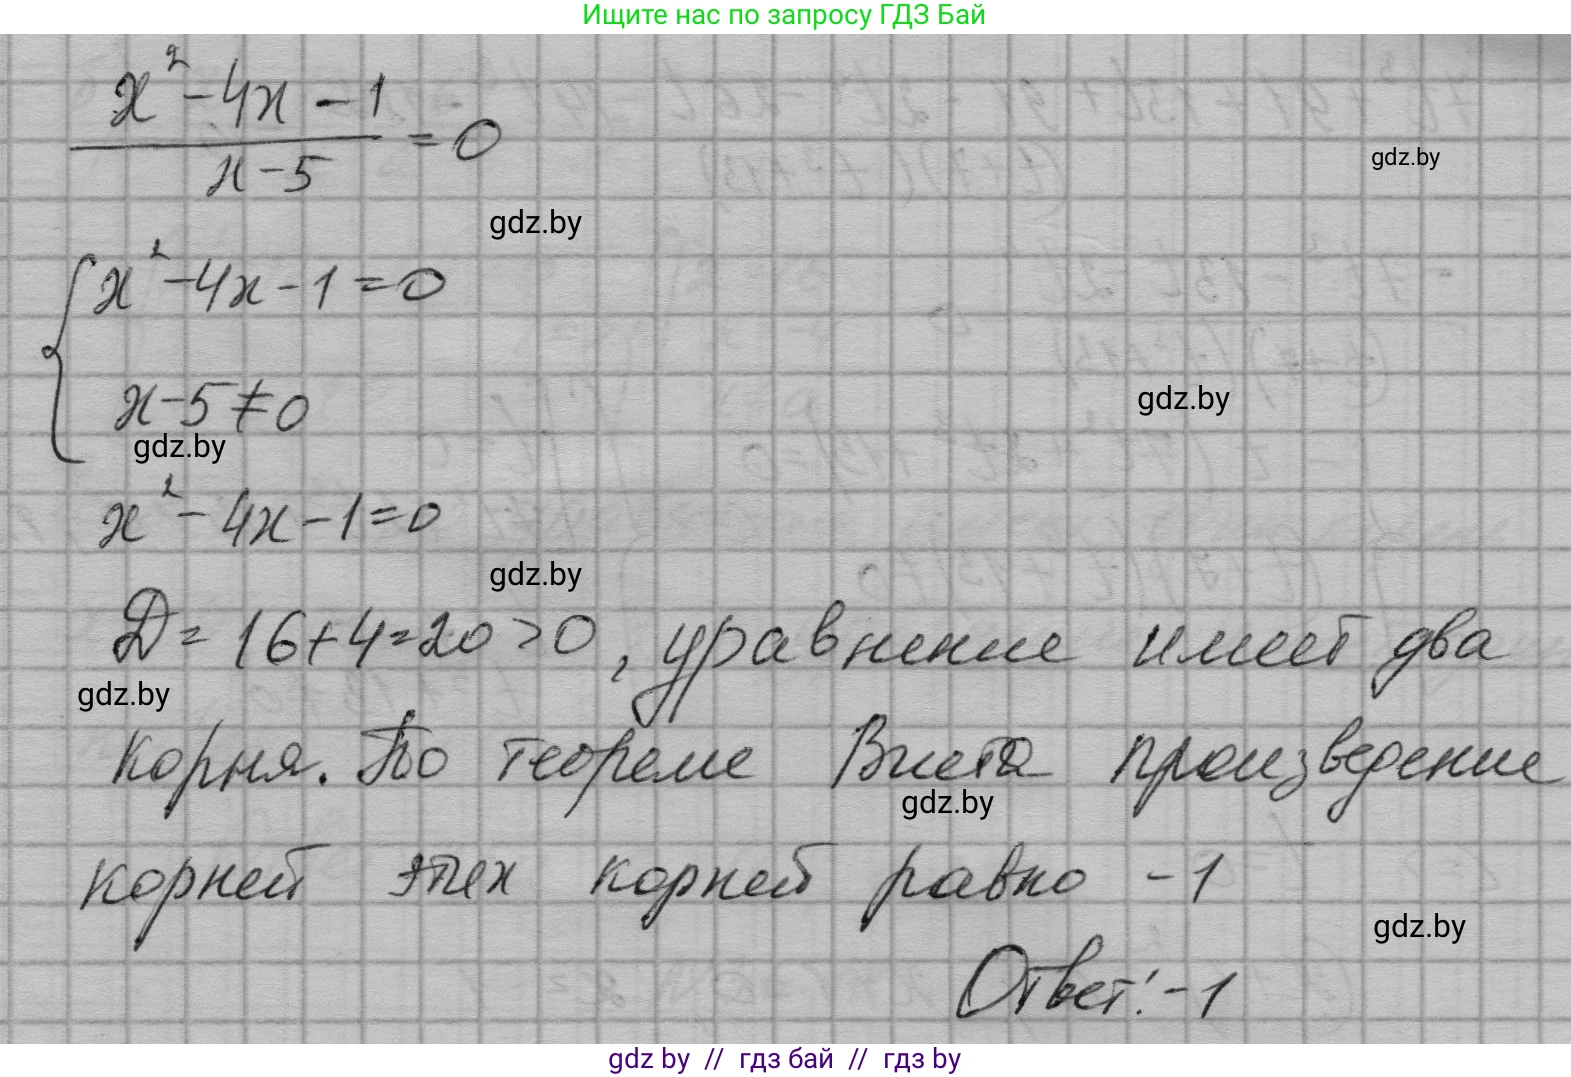 Ищите нас по запросу ГДЗ Бай
x² - 4x - 1
x - 5
= 0
gdz.by
gdz.by
x² - 4x - 1 = 0
x - 5 ≠ 0
gdz.by
gdz.by
x² - 4x - 1 = 0
gdz.by
D = 16 + 4 = 20 > 0, уравнение имеет два
gdz.by
корня. По теореме Виета произведение
gdz.by
корней этих корней равно -1
gdz.by
Ответ: -1
gdz by // гдз бай // гдз by